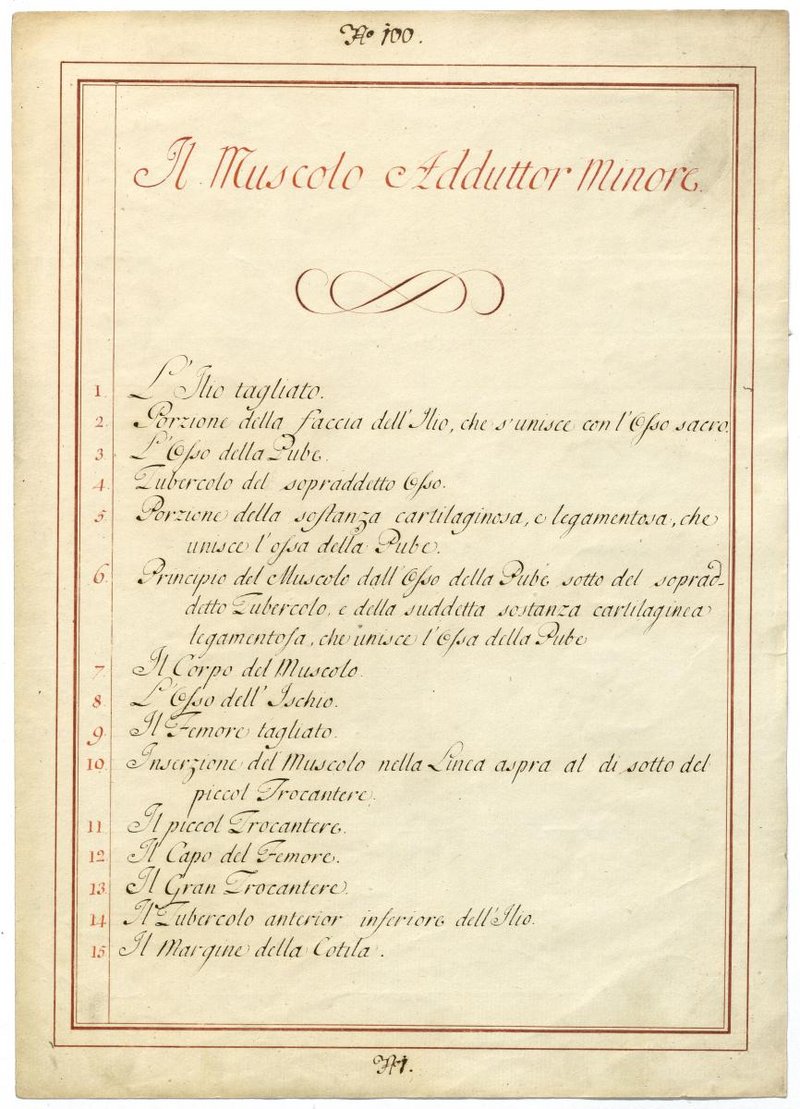 No 100.
Il Muscolo Adduttor Minore.
1. L'Ilio tagliato.
2. Porzione della faccia dell'Ilio, che s'unisce con l'Osso sacro.
3. L'Osso della Pube.
4. Tubercolo del sopraddetto Osso.
5. Porzione della sostanza cartilaginosa, e legamentosa, che
unisce l'ossa della Pube.
6. Principio del Muscolo dall'Osso della Pube sotto del soprad-
detto Tubercolo, e della suddetta sostanza cartilaginea
legamentosa, che unisce l'Ossa della Pube
7. Il Corpo del Muscolo.
8. L'Osso dell'Ischio.
9. Il Femore tagliato.
10. Inserzione del Muscolo nella Linea aspra al di sotto del
piccol Trocantere.
11 Il piccol Trocantere.
12 Il Capo del Femore.
13. Il Gran Trocantere.
14 Il Tubercolo anterior inferiore dell'Ilio.
15 Il Margine della Cotila.